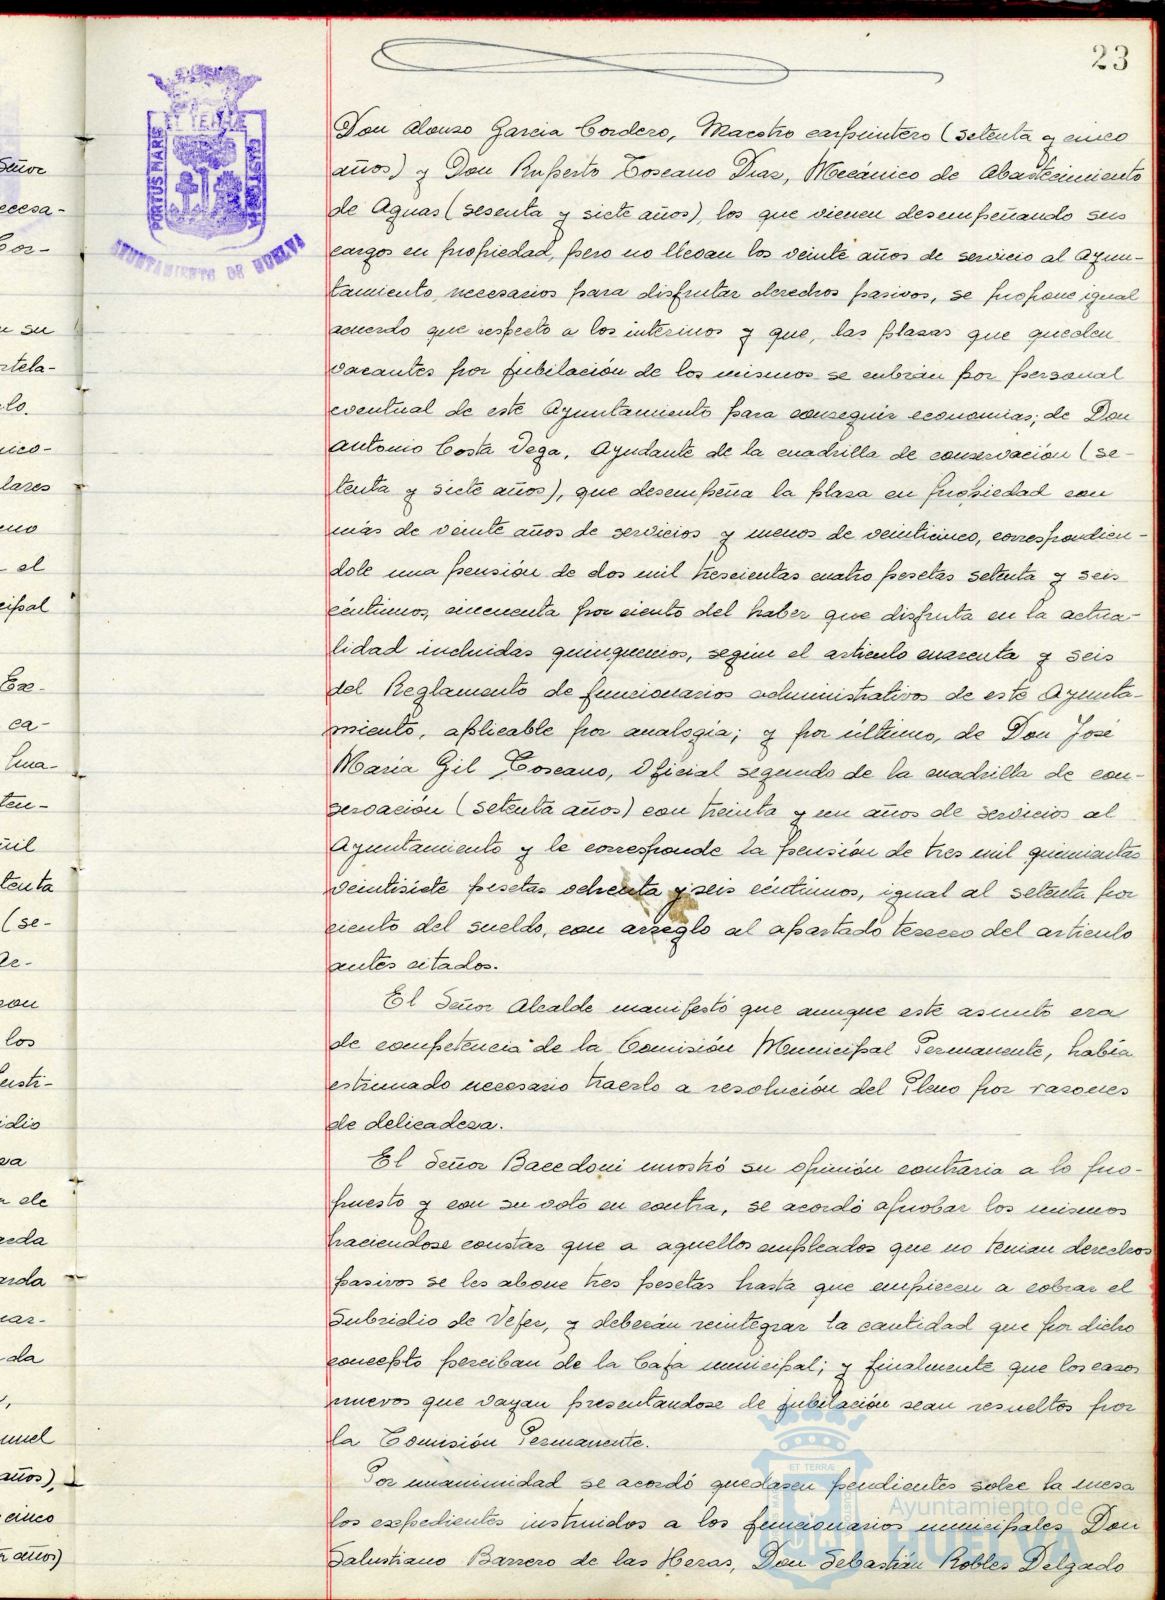 23
PORTUS MARIS
ET TERRAE
CUSTODIA
AYUNTAMIENTO DE HUELVA
Don Alonso Garcia Cordero, Maestro carpintero (setenta y cinco
años) y Don Ruperto Toscano Diaz, Mecánico de Abastecimiento
de Aguas (sesenta y siete años), los que vienen desempeñando sus
cargos en propiedad, pero no llevan los veinte años de servicio al Ayun-
tamiento, necesarios para disfrutar derechos pasivos, se propone igual
acuerdo que respecto a los interinos y que, las plazas que queden
vacantes por jubilación de los mismos se cubran por personal
eventual de este Ayuntamiento para conseguir economias; de Don
Antonio Costa Vega, Ayudante de la cuadrilla de conservación (se-
tenta y siete años), que desempeña la plaza en propiedad con
más de veinte años de servicios y menos de veinticinco, correspondien-
dole una pensión de dos mil trescientas cuatro pesetas setenta y seis
céntimos, cincuenta por ciento del haber que disfruta en la actua-
lidad incluidas quinquenios, según el articulo cuarenta y seis
del Reglamento de funcionarios administrativos de este Ayunta-
miento, aplicable por analogía; y por último, de Don José
María Gil Toscano, Oficial segundo de la cuadrilla de con-
servación (setenta años) con treinta y un años de servicios al
Ayuntamiento y le corresponde la pensión de tres mil quinientas
veintisiete pesetas ochenta y seis céntimos, igual al setenta por
ciento del sueldo, con arreglo al apartado tercero del articulo
antes citados.
El Señor Alcalde manifestó que aunque este asunto era
de competencia de la Comisión Municipal Permanente, había
estimado necesario traerlo a resolución del Pleno por razones
de delicadeza.
El Señor Bacedoni mostró su opinión contraria a lo pro-
puesto y con su voto en contra, se acordó aprobar los mismos
haciendose constar que a aquellos empleados que no tenian derechos
pasivos se les abone tres pesetas hasta que empiecen a cobrar el
Subsidio de Vejez, y deberán reintegrar la cantidad que por dicho
concepto perciban de la Caja municipal; y finalmente que los casos
nuevos que vayan presentandose de jubilación sean resueltos por
la Comisión Permanente.
Por unanimidad se acordó quedasen pendientes sobre la mesa
los expedientes instruidos a los funcionarios municipales Don
Salustiano Barrero de las Heras, Don Sebastián Robles Delgado
Señor
ecesa-
Cor-
su
rtela-
lo.
nico-
lares
el
cipal
Ex-
ca-
ten-
mil
tenta
(se-
los
idio
de
arda
da
años),
cinco
años)
ET TERRAE
Ayuntamiento de
HUELVA